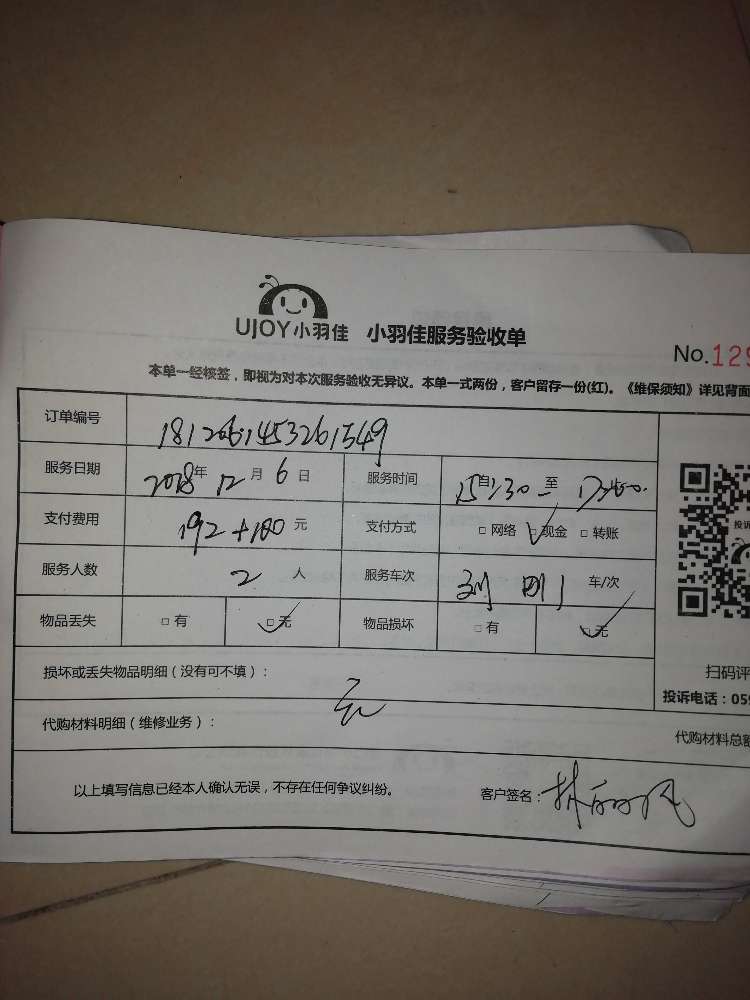 UJOY小羽佳 小羽佳服务验收单
No.129
本单一经核签，即视为对本次服务验收无异议。本单一式两份，客户留存一份(红)。《维保须知》详见背面
订单编号 1812061453261549
服务日期 2018年 12月 6日 服务时间 15自:30 至 17:40
支付费用 192+180元 支付方式 □网络 ☑现金 □转账
服务人数 2人 服务车次 刘刚 车/次
物品丢失 □有 ☑无 物品损坏 □有 ☑无
扫码评
损坏或丢失物品明细（没有可不填）：
投诉电话：059
无
代购材料明细（维修业务）： 代购材料总额
以上填写信息已经本人确认无误，不存在任何争议纠纷。 客户签名：